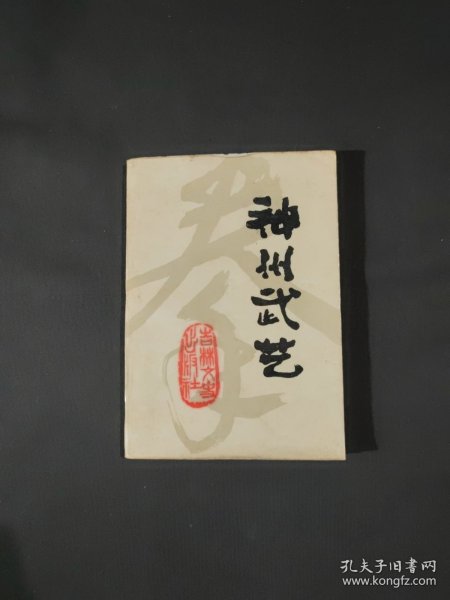 武艺
拳
吉林文史
出版社
孔夫子旧书网
www.kongfz.com